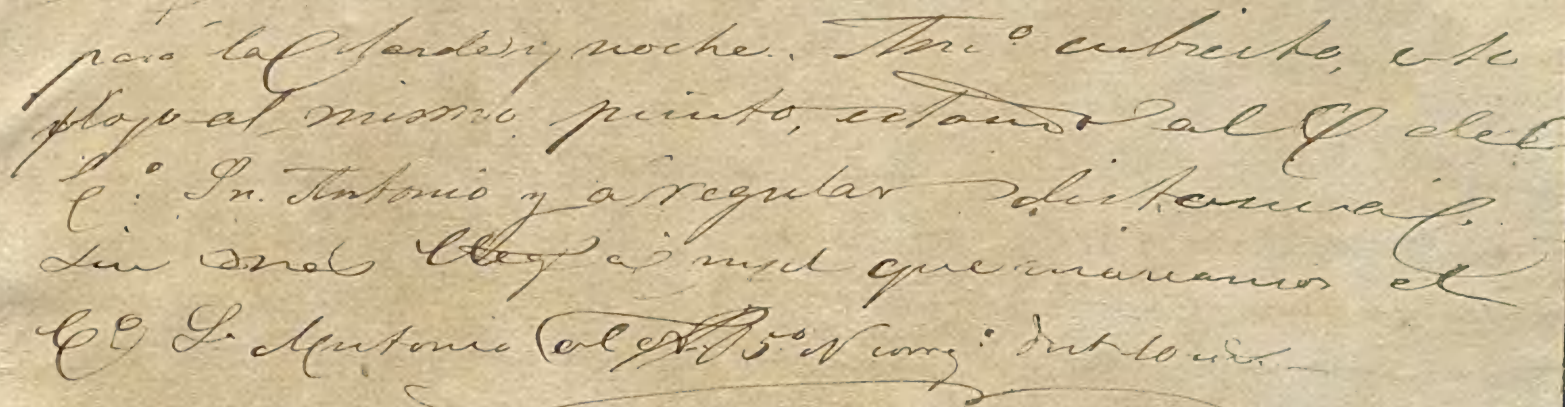 para la tarde y noche. Anº cubierto, este
plojo al mismo punto, estando al del
Cº. Sn. Antonio y á regular distancia.
Sin más llegó á md que marcamos el
Cº Sn Antonio al 5º N corrgº dist 10